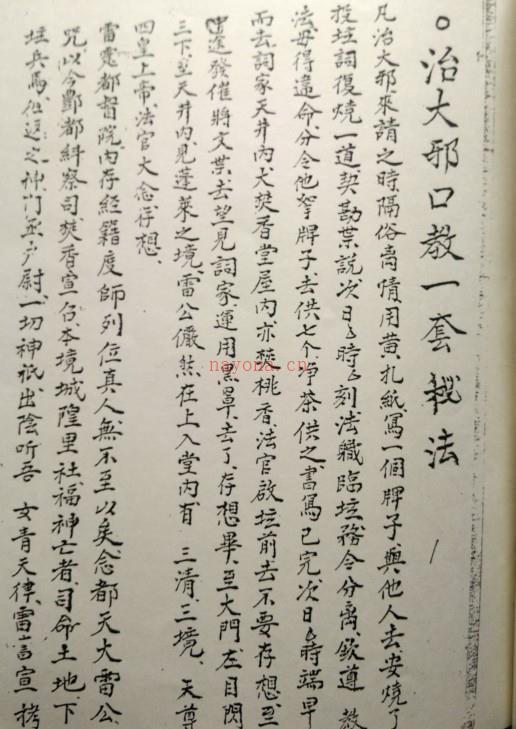 ○治大邪口教一套秘法
凡治大邪來請之時隔俗离情用黄扎紙寫一個牌子與他人去安燒了
投坛詞復燒一道契勘葉說次日ㄣ時ㄣ刻法職臨坛務令分离欽遵 教
法毋得違命分令他拏牌子去供七个净茶供之書寫已完次日ㄣ時端早
而去詞家天井內犬焚香堂屋內亦桃香法官啟坛前去不要存想至
中途發催將文去望見詞家運用黑去了存想畢至大門左目閃
三下至天井內見蓬萊之境雷公儼然在上入堂內有 三清三境 天尊
四皇上帝法官大念存想
雷霆都督院內存經籍度師列位真人無不至以矣念都天大雷公
咒以令酆都糾察司焚香宣召本境城隍里社福神亡者司命土地下
坛兵馬之神門丞户尉一切神祇出陰听吾 女青天律雷言宣拷
nayona.cn